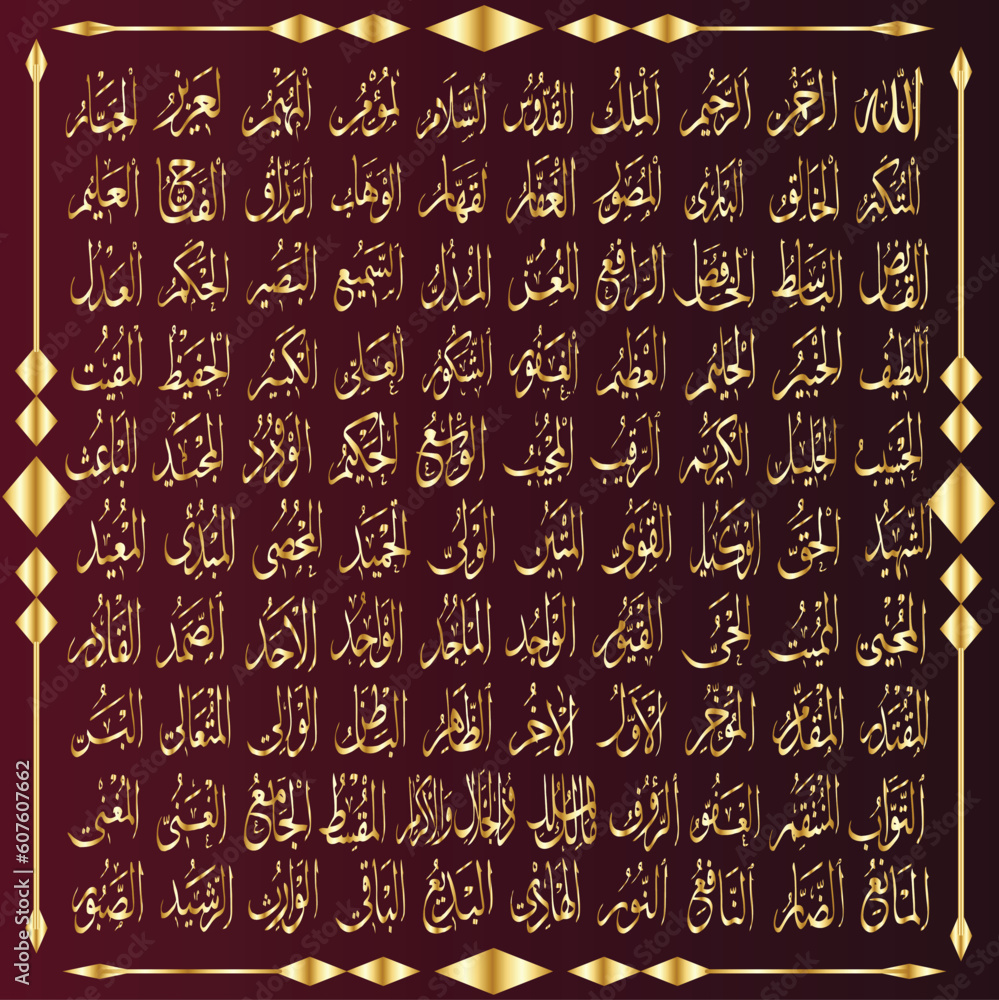 الله الرحمن الرحيم الملك القدوس السلام لمؤمن المهيمن لعزيز الجبار
المتكبر الخالق البارئ المصور الغفار لقهار الوهاب الرزاق الفتاح العليم
القابض الباسط الخافض الرافع المعز المذل السميع البصير الحكم العدل
اللطيف الخبير الحليم العظيم الغفور الشكور العلي الكبير الحفيظ المقيت
الحسيب الجليل الكريم الرقيب المجيب الواسع الحكيم الودود المجيد الباعث
الشهيد الحق الوكيل القوى المتين الولى الحميد المحصى المبدئ المعيد
المحيى المميت الحى القيوم الواجد الماجد الواحد الاحد الصمد القادر
المقتدر المقدم المؤخر الاول الاخر الظاهر الباطن الوالي المتعالي البر
التواب المنتقم العفو الرؤوف مالك الملك ذو الجلال والاكرام المقسط الجامع الغنى المغنى
المانع الضار النافع النور الهادي البديع الباقي الوارث الرشيد الصبور
Adobe Stock | #607607662
Adobe Stock